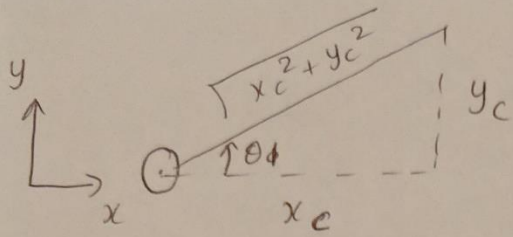 y
√(x_c² + y_c²)
y_c
θ₁
x
x_c